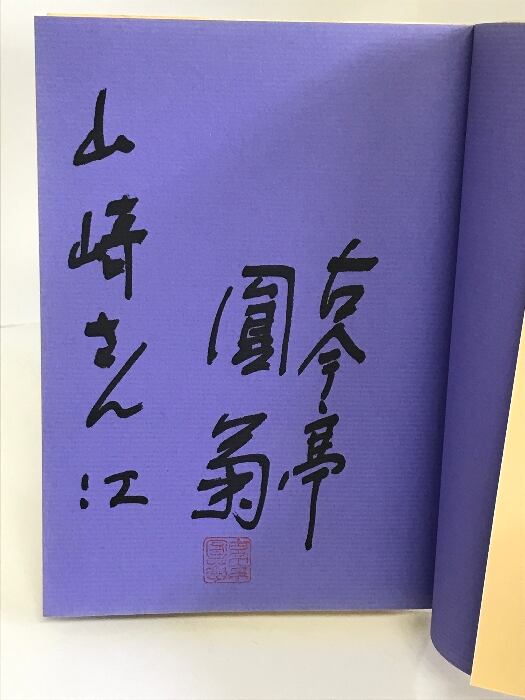 古今亭
圓菊
山崎さん江